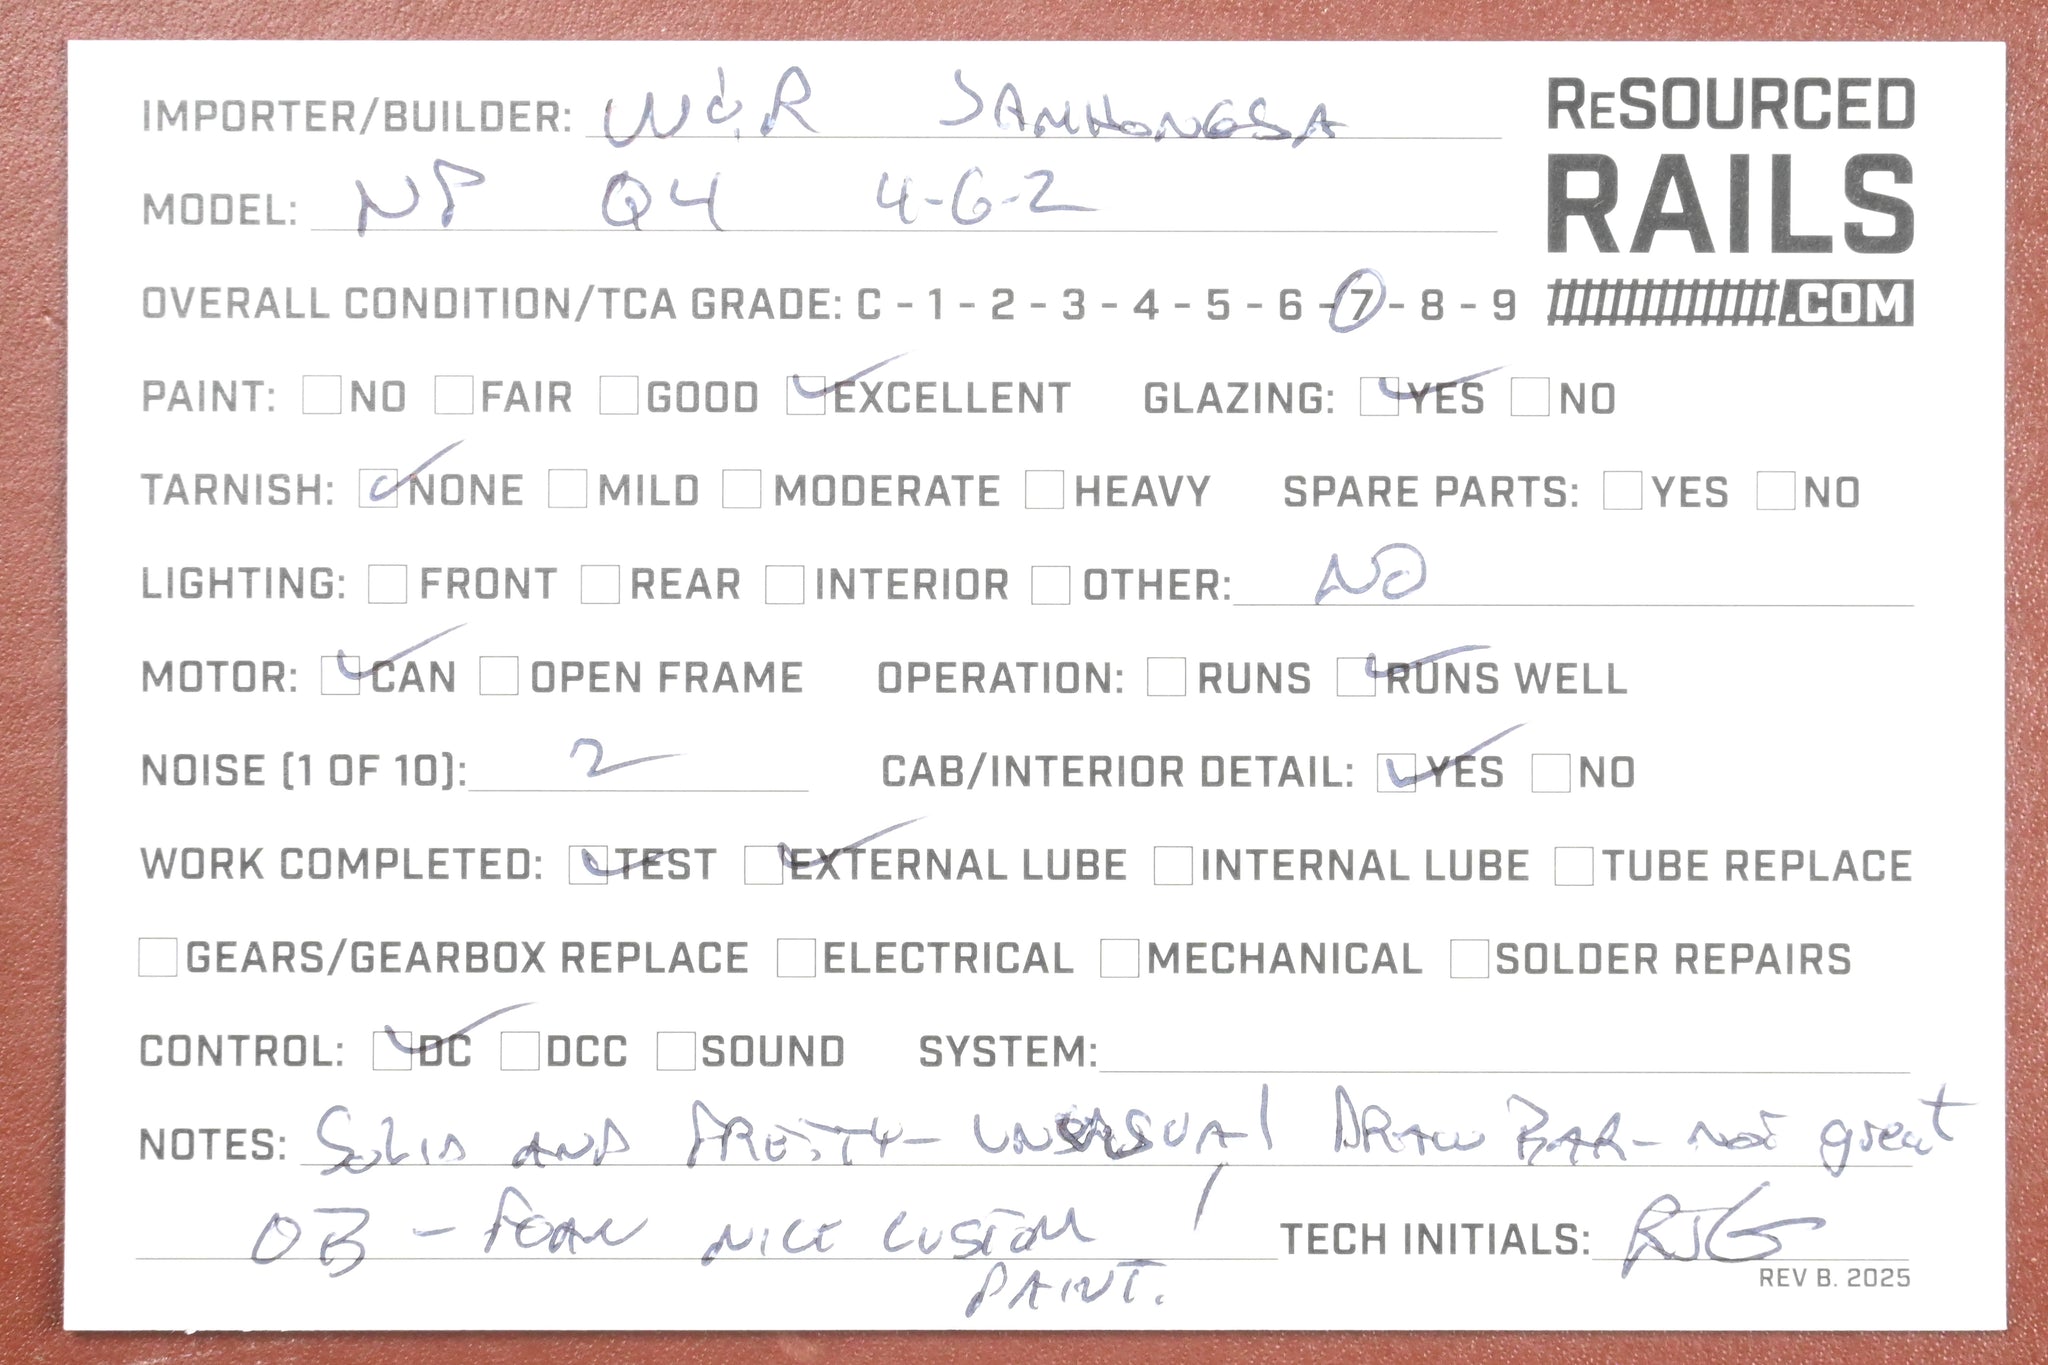 IMPORTER/BUILDER: W&R SAMHONGSA
ReSOURCED
RAILS
.COM
MODEL: NP Q4 4-6-2
OVERALL CONDITION/TCA GRADE: C - 1 - 2 - 3 - 4 - 5 - 6 - 7 - 8 - 9
PAINT: NO FAIR GOOD EXCELLENT GLAZING: YES NO
TARNISH: NONE MILD MODERATE HEAVY SPARE PARTS: YES NO
LIGHTING: FRONT REAR INTERIOR OTHER: NO
MOTOR: CAN OPEN FRAME OPERATION: RUNS RUNS WELL
NOISE (1 OF 10): 2 CAB/INTERIOR DETAIL: YES NO
WORK COMPLETED: TEST EXTERNAL LUBE INTERNAL LUBE TUBE REPLACE
GEARS/GEARBOX REPLACE ELECTRICAL MECHANICAL SOLDER REPAIRS
CONTROL: DC DCC SOUND SYSTEM:
NOTES: SOLID AND PRETTY - UNUSUAL DRAW BAR - NOT great
OB - FOAM NICE CUSTOM TECH INITIALS: RJG
PAINT.
REV B. 2025